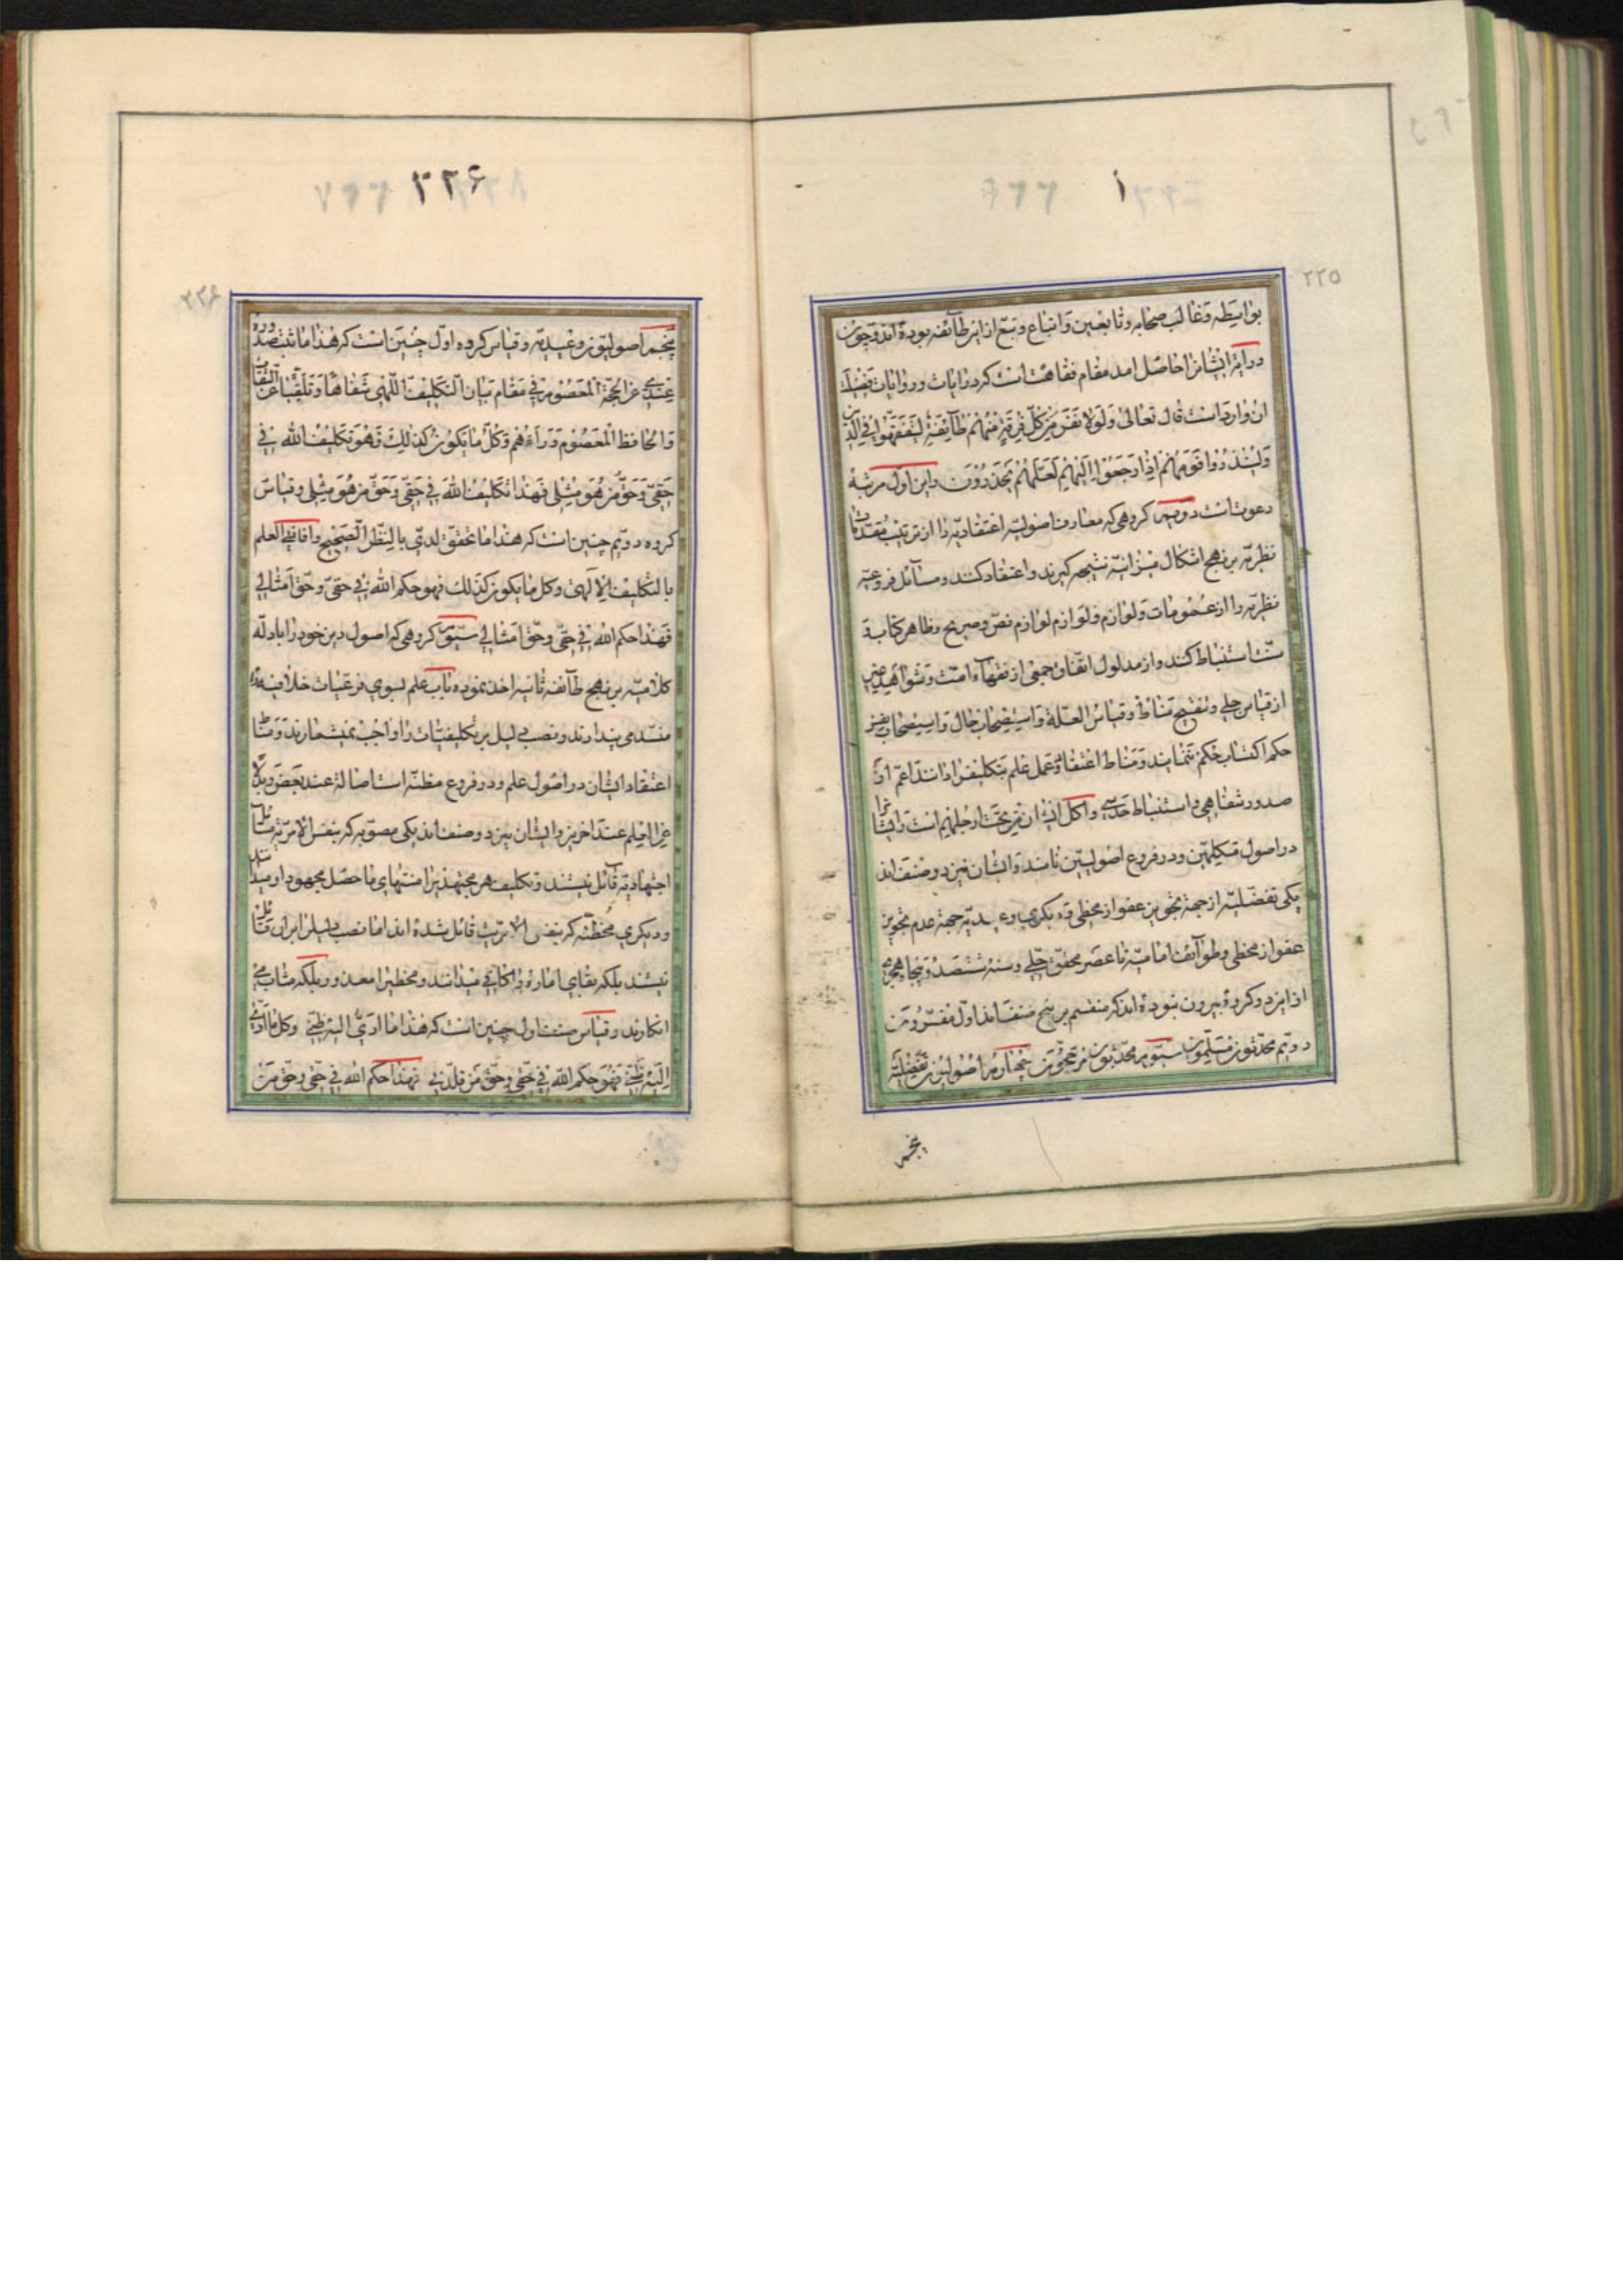 ۲۲۵
بواسطه و غالب صحابه و تابعین و اتباع و تبع ازین طائفه بوده‌اند و چون
درایة ایشانرا حاصل امد مقام فقاهت است که در ایات و روایات فضیلت
ان وارد است قال تعالی وَلَولا نَفَرَ مِن کُلِّ فِرقَةٍ مِنهُم طآئِفَةٌ لِیَتَفَقَّهُوا فِی الدّینِ
وَلِیُنذِرُوا قَومَهُم اِذا رَجَعُوا اِلَیهِم لَعَلَّهُم یَحذَرُونَ و این اول مرتبهٔ
دعوتست دویم کروهی که معارف اصولیّه اعتقادیّه را از ترتیب مقدمات
نظریّه بر نهج اشکال میزانیّه نتیجه کیرند و اعتقاد کنند و مسآئل فروعیّه
نظریّه را از عمومات و لوازم و لوازم لوازم نصّ و صریح و ظاهر کتاب و
سنّت استنباط کنند و از مدلول اتفاق جمعی از فقهآء امّت و شواهد ظنین
از قیاس جلی و تنقیح مناط و قیاس العلّة و استصحاب حال و استصحاب
حکم اکتساب حکم نمایند و مناط اعتقاد و عمل علم بتکلیف را دانند اعم از
صدور شفاهی و استنباط حدسی و اکل ایشان من تحت ارجلهم است و ایشانرا
در اصول متکلمین و در فروع اصولیّین نامند و ایشان نیز دو صنف‌اند
یکی تفضّلیّه از جهة تجویز عفو از مخطی و دیکری وعیدیّه جهة عدم تجویز
عفو از مخطی و طوآئف امامیّه تا عصر محقق حلی و سنهٔ ششصد و پنجاه هجری
از این دو کروه بیرون نبوده‌اند که منقسم بر پنج صنف‌اند اول مفسّرون
دویم محدّثون مسلّمون سیّوم محدّثون مرجّحون چهارم اصولیّون تفضّلیّه
پنجم
۲۲۶
۲۲۶
پنجم اصولیّون وعیدیّه و قیاس کروه اوّل چنین است که هذا ما ثبت صدوره
عندی عن الحجّة المعصوم فی مقام بیان التکلیف اللّهی شفاها و تلقّیا عن الثقات
و الحافظ المعصوم ورآءهم و کلّ ما یکون کذلک فهو تکلیف الله فی
حقّی و حقّ من هو مثلی فهذا تکلیف الله فی حقّی و حقّ من هو مثلی و قیاس
کروه دویم چنین است که هذا ما تحقق لدیّ بالنظر الصحیح و افاد لی العلم
بالتکلیف الالهی و کل ما یکون کذلک فهو حکم الله فی حقی و حقّ امثالی
فهذا حکم الله فی حقی و حقّ امثالی سیّوم کروهی که اصول دین خود را بادلّه
کلامیّه بر نهج طآئفه ثانیه اخذ نموده باب علم بسوی فرعیات خلافیه را
منسدّ می پندارند و نصب دلیل بر تکلیفیات را واجب نمیشمارند و مناط
اعتقاد ایشان در اصول علم و در فروع مظنّه است اصالة عند بعض و بدلا
عن العلم عند اخرین و ایشان نیز دو صنف‌اند یکی مصوّبه که بنفس الامریّة مسآئل
اجتهادیّه قآئل نیستند و تکلیف هر مجتهدیرا منتهای ما حصّل مجهود او میدانند
و دیکری مخطّئه که بنفس الامریّت قائل شده‌اند اما نصب دلیل را بر ان قائل
نیستند بلکه بقای اماره را کافی میدانند و مخطیرا معذور بلکه مثاب می
انکارند و قیاس صنف اول چنین است که هذا ما ادّیٰ الیه ظنّی و کل ما ادّی
الیه ظنّی فهو حکم الله فی حقّی و حقّ من قلّدنی فهذا حکم الله فی حقّی و حقّ من